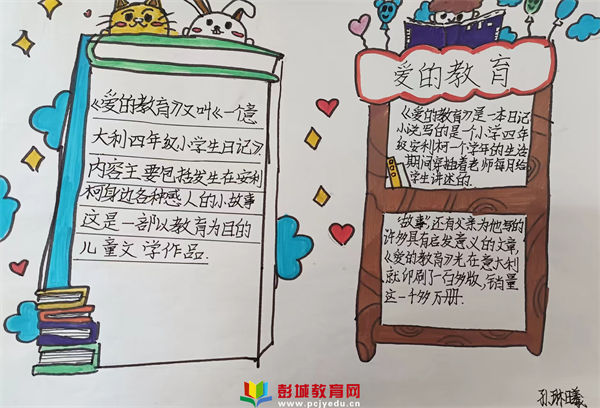 《爱的教育》又叫《一个意
大利四年级小学生日记》
内容主要包括发生在安利
柯身边各种感人的小故事
这是一部以教育为目的
儿童文学作品.
爱的教育
《爱的教育》是一本日记
小说写的是个小学四年
级安利柯一个学年的生活
期间穿插着老师每月给
学生讲述的.
"故事",还有父亲为他写的
许多具有启发意义的文章,
《爱的教育》光在意大利
就印刷了一百多版,销量
达一千多万册.
彭城教育网
www.pcjyedu.cn
孔琳曦